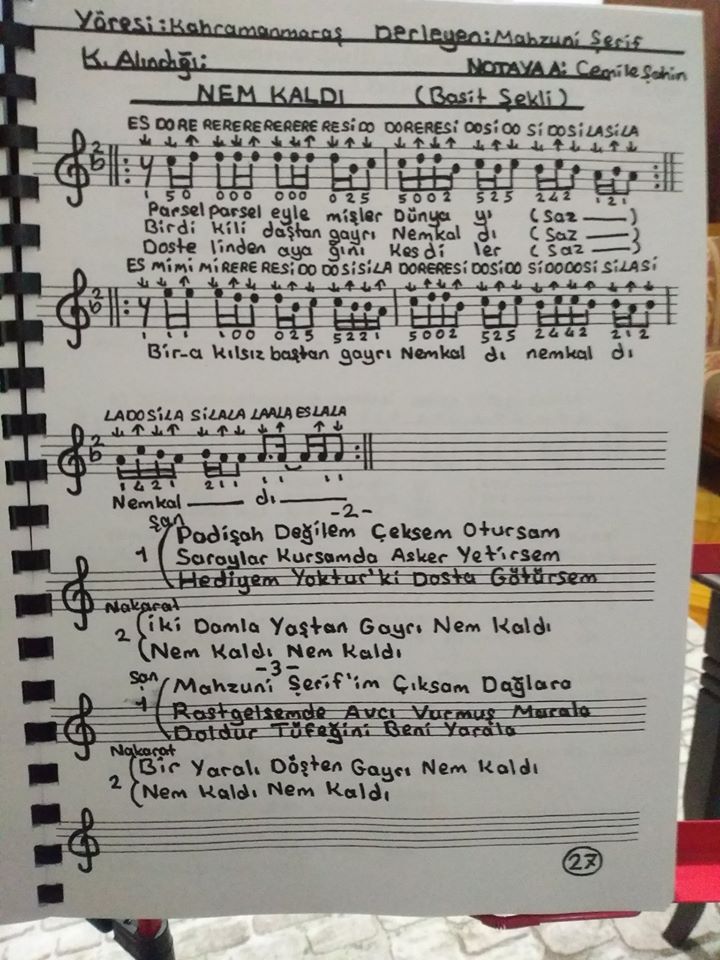 Yöresi: Kahramanmaraş Derleyen: Mahzuni Şerif
K. Alındığı: NOTAYA A: Cemile Şahin
NEM KALDI (Basit Şekli)
ES DO RE RERERE RERERE RESİDO DORERESİ DOSİDO SİDOSİ LASİLA
1 5 0 0 0 0 0 0 0 0 2 5 5 0 0 2 5 2 5 2 4 2 1 2 1
Parsel parsel eyle mişler Dünya yı (Saz —)
Birdi kili daştan gayrı Nemkal dı (Saz —)
Doste linden aya ğını kesdi ler (Saz —)
ES Mİ Mİ MİRERE RESİDO DOSİSİLA DORERESİ DOSİDO SİDODOSİ SİLASİ
1 1 1 1 0 0 0 2 5 5 2 2 1 5 0 0 2 5 2 5 2 4 4 2 2 1 2
Bir-a kılsız baştan gayrı Nemkal dı nemkal dı
LADOSİLA SİLALA LAALA ESLALA
1 4 2 1 2 1 1 1 1 1 1
Nemkal — dı —
-2-
Şan
1 Padişah Değilem Çeksem Otursam
Saraylar Kursamda Asker Yetirsem
Hediyem Yoktur'ki Dosta Götürsem
Nakarat
2 İki Damla Yaştan Gayrı Nem Kaldı
Nem Kaldı Nem Kaldı
-3-
Şan
1 Mahzuni Şerif'im Çıksam Dağlara
Rastgelsemde Avcı Vurmuş Marala
Doldur Tüfeğini Beni Yarala
Nakarat
2 Bir Yaralı Döşten Gayrı Nem Kaldı
Nem Kaldı Nem Kaldı
27